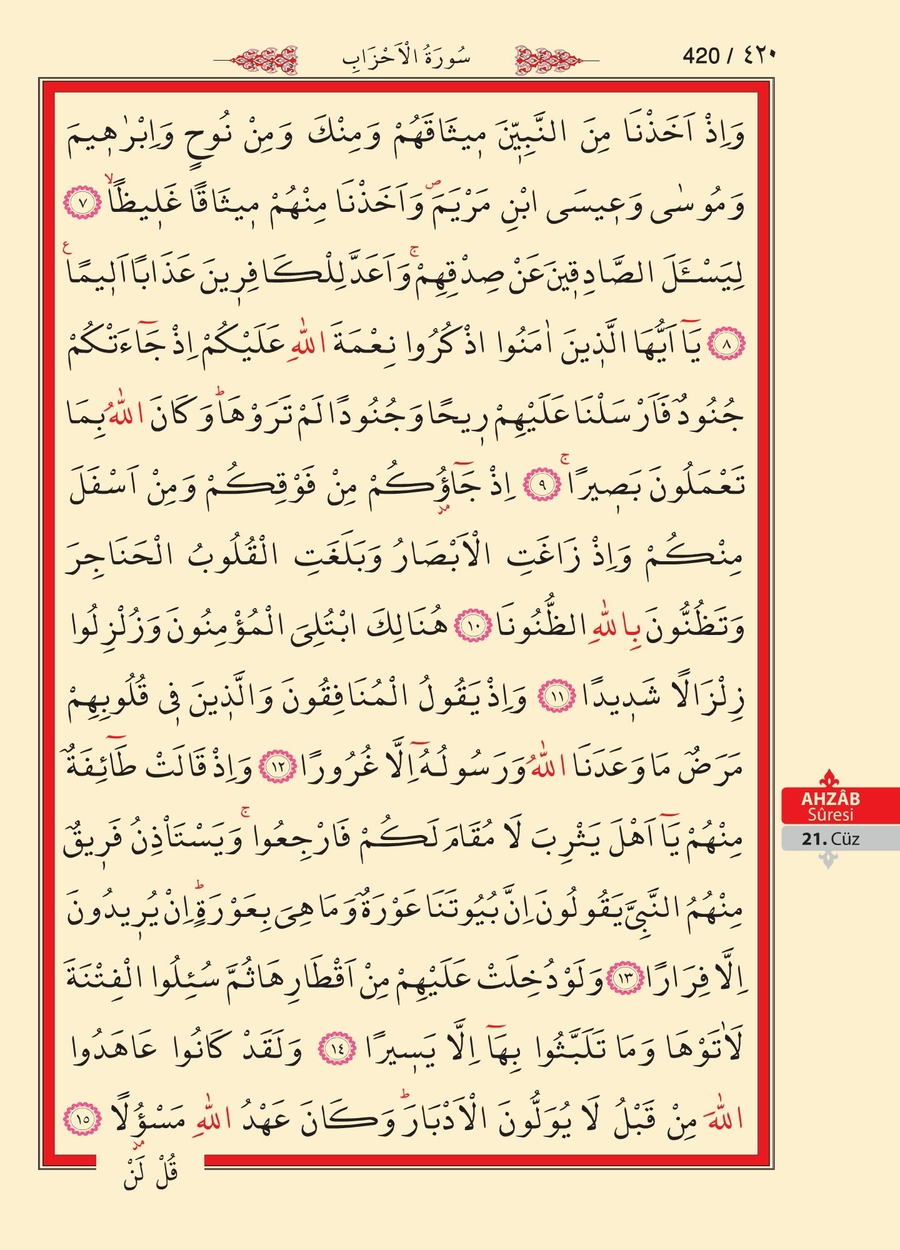 سُورَةُ الْاَحْزَابِ
420 / ٤٢٠
وَاِذْ اَخَذْنَا مِنَ النَّبِيّ۪نَ م۪يثَاقَهُمْ وَمِنْكَ وَمِنْ نُوحٍ وَاِبْرٰه۪يمَ
وَمُوسٰى وَع۪يسَى ابْنِ مَرْيَمَۖ وَاَخَذْنَا مِنْهُمْ م۪يثَاقًا غَل۪يظًاۙ ٧
لِيَسْـَٔلَ الصَّادِق۪ينَ عَنْ صِدْقِهِمْۚ وَاَعَدَّ لِلْكَافِر۪ينَ عَذَابًا اَل۪يمًاࣖ
٨ يَٓا اَيُّهَا الَّذ۪ينَ اٰمَنُوا اذْكُرُوا نِعْمَةَ اللّٰهِ عَلَيْكُمْ اِذْ جَٓاءَتْكُمْ
جُنُودٌ فَاَرْسَلْنَا عَلَيْهِمْ ر۪يحًا وَجُنُودًا لَمْ تَرَوْهَاۜ وَكَانَ اللّٰهُ بِمَا
تَعْمَلُونَ بَص۪يرًاۚ ٩ اِذْ جَٓاؤُ۫كُمْ مِنْ فَوْقِكُمْ وَمِنْ اَسْفَلَ
مِنْكُمْ وَاِذْ زَاغَتِ الْاَبْصَارُ وَبَلَغَتِ الْقُلُوبُ الْحَنَاجِرَ
وَتَظُنُّونَ بِاللّٰهِ الظُّنُونَا ١٠ هُنَالِكَ ابْتُلِيَ الْمُؤْمِنُونَ وَزُلْزِلُوا
زِلْزَالًا شَد۪يدًا ١١ وَاِذْ يَقُولُ الْمُنَافِقُونَ وَالَّذ۪ينَ ف۪ي قُلُوبِهِمْ
مَرَضٌ مَا وَعَدَنَا اللّٰهُ وَرَسُولُهُٓ اِلَّا غُرُورًا ١٢ وَاِذْ قَالَتْ طَٓائِفَةٌ
مِنْهُمْ يَٓا اَهْلَ يَثْرِبَ لَا مُقَامَ لَكُمْ فَارْجِعُواۚ وَيَسْتَأْذِنُ فَر۪يقٌ
مِنْهُمُ النَّبِيَّ يَقُولُونَ اِنَّ بُيُوتَنَا عَوْرَةٌ وَمَا هِيَ بِعَوْرَةٍۜ اِنْ يُر۪يدُونَ
اِلَّا فِرَارًا ١٣ وَلَوْ دُخِلَتْ عَلَيْهِمْ مِنْ اَقْطَارِهَا ثُمَّ سُئِلُوا الْفِتْنَةَ
لَاٰتَوْهَا وَمَا تَلَبَّثُوا بِهَٓا اِلَّا يَس۪يرًا ١٤ وَلَقَدْ كَانُوا عَاهَدُوا
اللّٰهَ مِنْ قَبْلُ لَا يُوَلُّونَ الْاَدْبَارَۜ وَكَانَ عَهْدُ اللّٰهِ مَسْؤُ۫لًا ١٥
قُلْ لَنْ
AHZÂB
Sûresi
21. Cüz